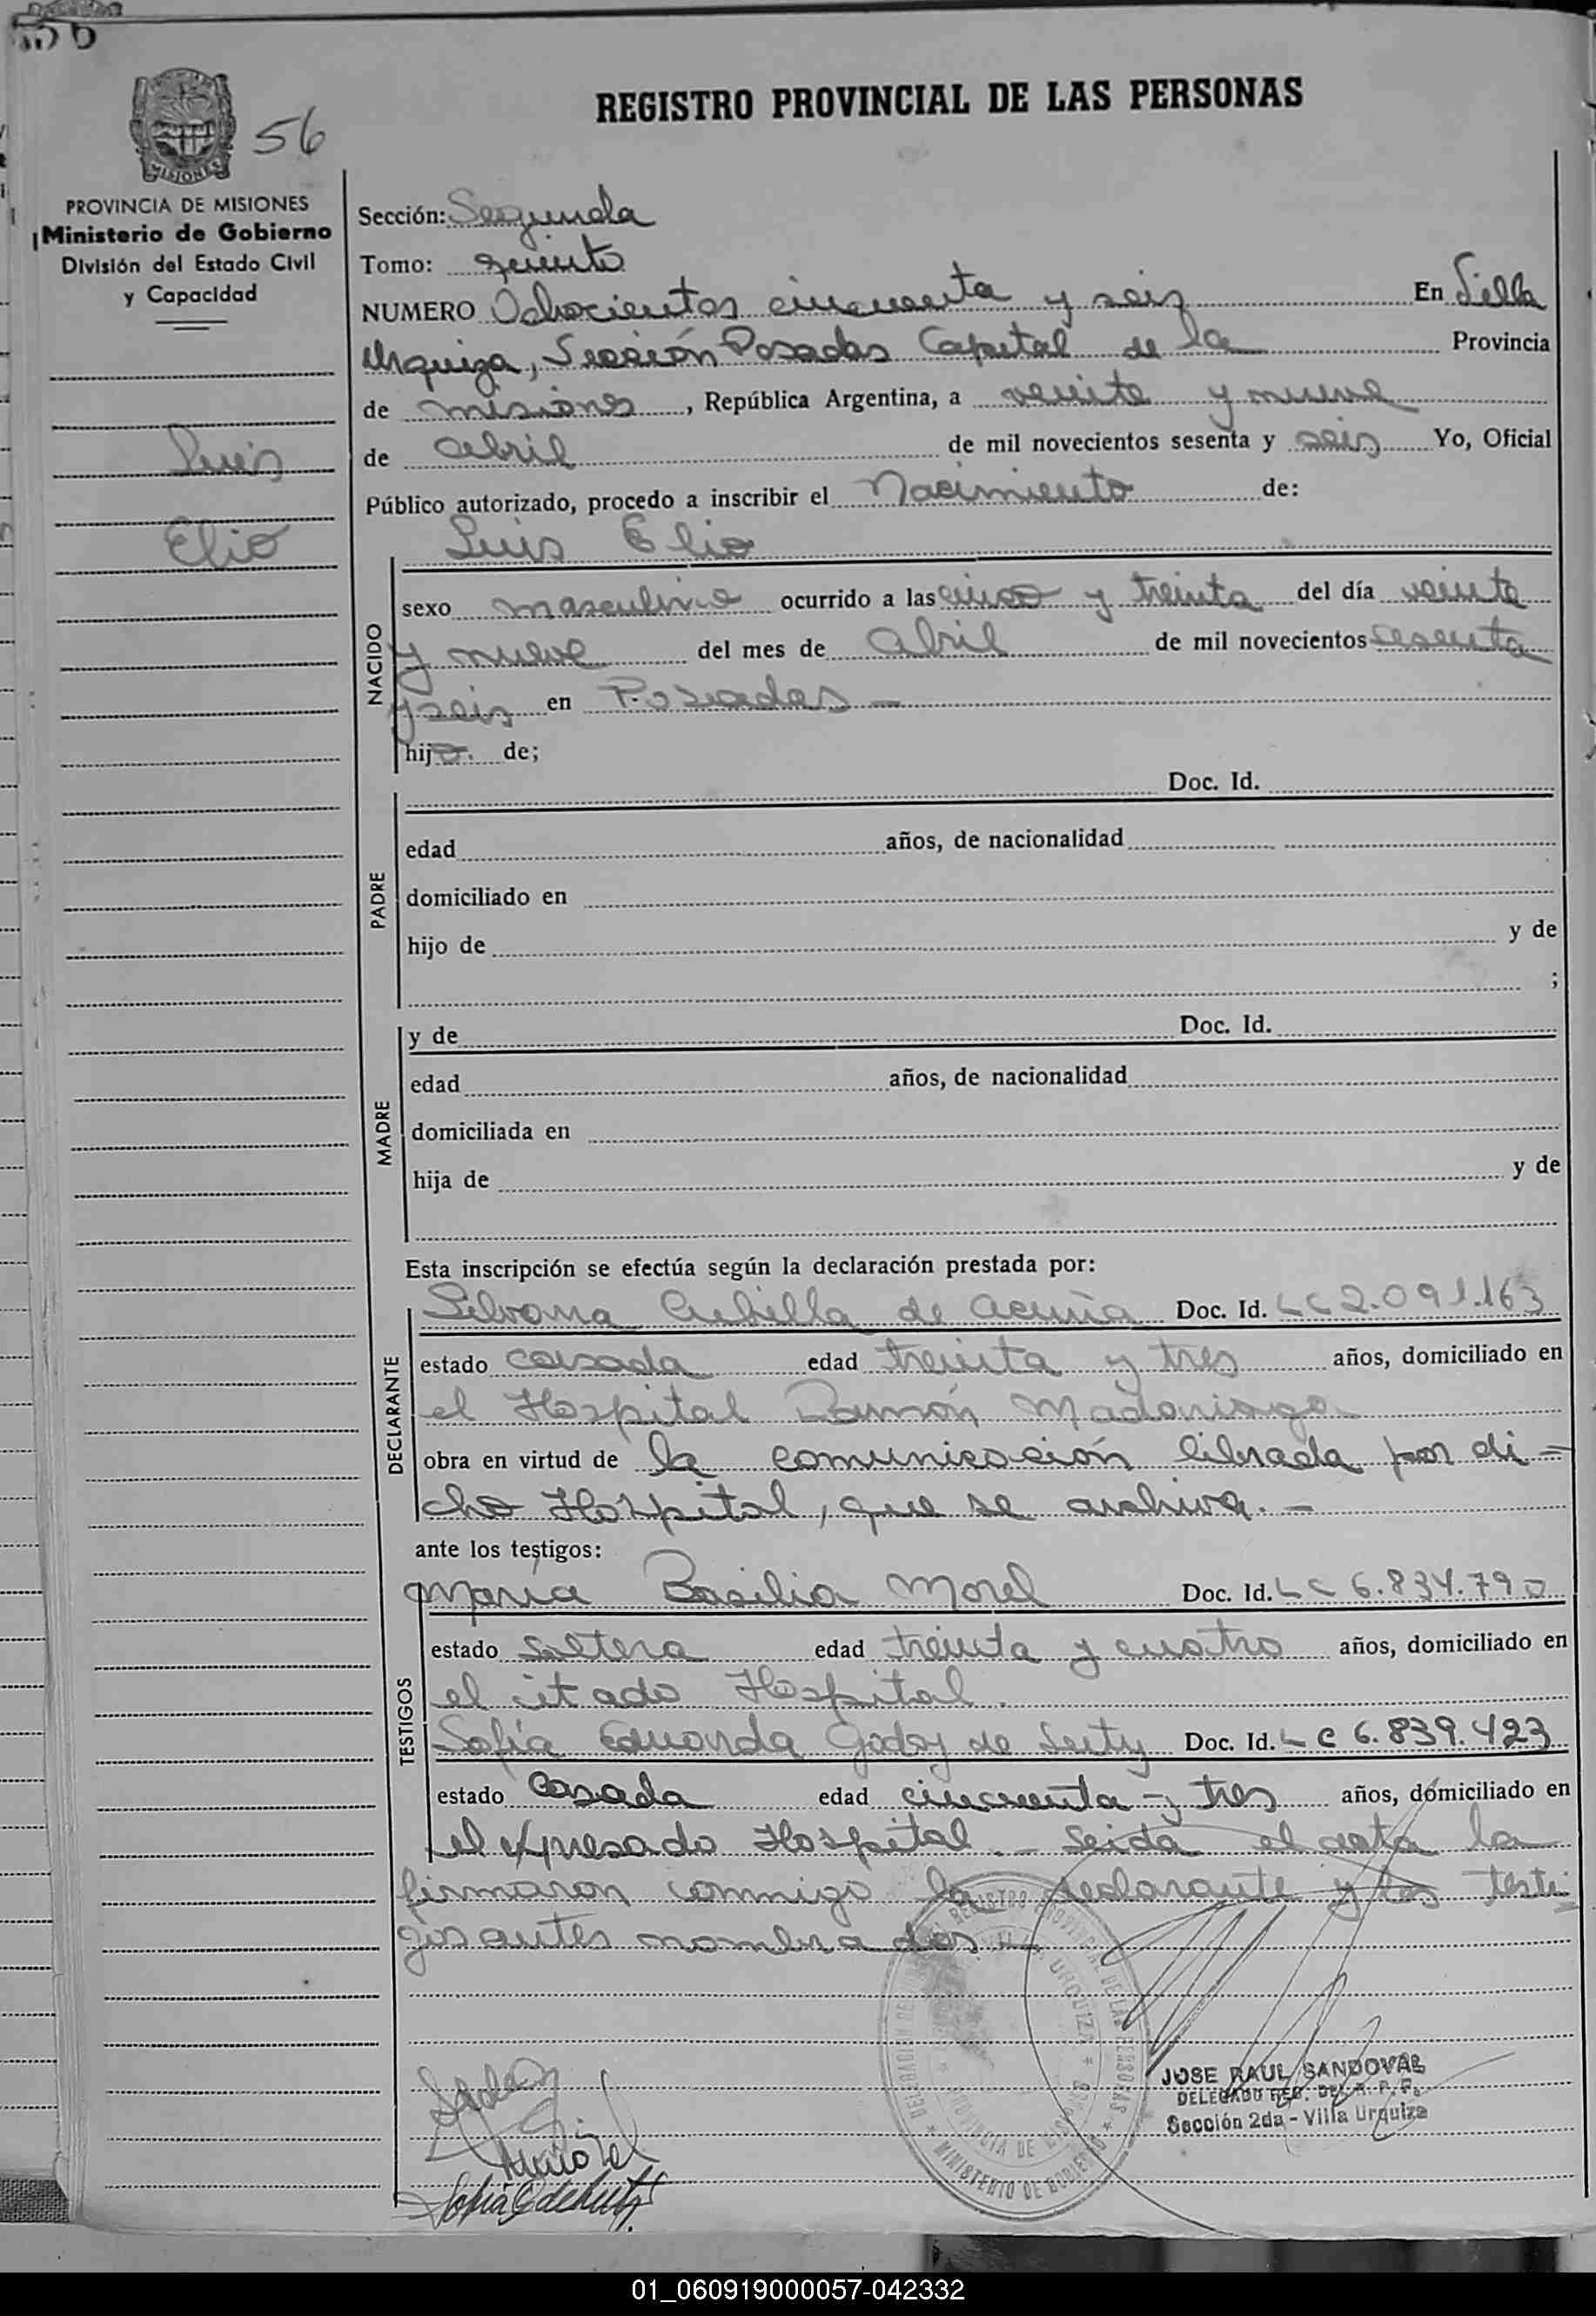 56
REGISTRO PROVINCIAL DE LAS PERSONAS
MISIONES
PROVINCIA DE MISIONES
Ministerio de Gobierno
División del Estado Civil
y Capacidad
Luis
Elio
Sección: Segunda
Tomo: quinto
NUMERO Ochocientos cincuenta y seis En Villa
Urquiza, Sección Posadas Capital de la Provincia
de misiones, República Argentina, a veinte y nueve
de abril de mil novecientos sesenta y seis Yo, Oficial
Público autorizado, procedo a inscribir el Nacimiento de:
Luis Elio
NACIDO
sexo masculino ocurrido a las cinco y treinta del día veinte
y nueve del mes de abril de mil novecientos sesenta
y seis en Posadas —
hijo. de;
PADRE
Doc. Id.
edad años, de nacionalidad
domiciliado en
hijo de y de
;
MADRE
y de Doc. Id.
edad años, de nacionalidad
domiciliada en
hija de y de
Esta inscripción se efectúa según la declaración prestada por:
DECLARANTE
Silvana Cubilla de Acuña Doc. Id. LC 2.091.163
estado casada edad treinta y tres años, domiciliado en
el Hospital Ramón Madariaga
obra en virtud de la comunicación librada por di=
cho Hospital, que se archiva. —
ante los testigos:
TESTIGOS
María Basilia Morel Doc. Id. LC 6.834.790
estado soltera edad treinta y cuatro años, domiciliado en
el citado Hospital.
Sofía Eduarda Godoy de Doc. Id. LC 6.839.423
estado casada edad cincuenta y tres años, domiciliado en
el expresado Hospital. — Leida el acta la
firmaron conmigo la declarante y los testi-
gos antes nombrados —
DELEGACION DEL REGISTRO PROVINCIAL DE LAS PERSONAS
MINISTERIO DE GOBIERNO
PROVINCIA DE MISIONES
JOSE RAUL SANDOVAL
DELEGADO REG. DEL R. P. P.
Sección 2da - Villa Urquiza
01_060919000057-042332